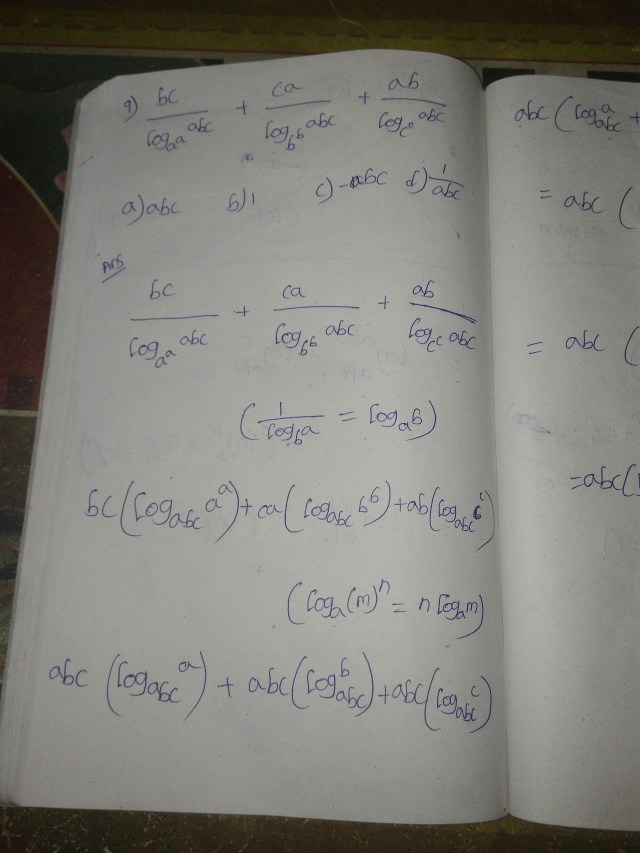 9) bc/log_{a^a} abc + ca/log_{b^b} abc + ab/log_{c^c} abc
a) abc b) 1 c) -abc d) 1/abc
Ans
bc/log_{a^a} abc + ca/log_{b^b} abc + ab/log_{c^c} abc
(1/log_b a = log_a b)
bc(log_{abc} a^a) + ca(log_{abc} b^b) + ab(log_{abc} c^c)
(log_a(m)^n = n log_a m)
abc (log_{abc} a) + abc(log_{abc} b) + abc(log_{abc} c)
abc(log_{abc} a +
= abc (
= abc (
=abc(